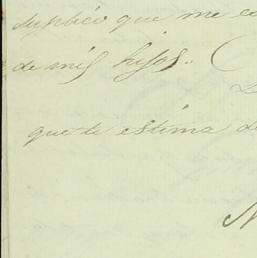 suplico que me
de mis hijos.
que te estima de